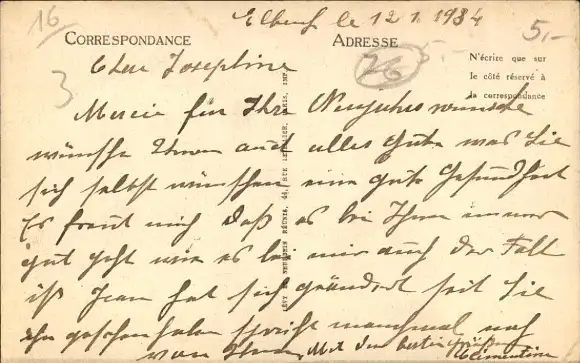 16
Elbeuf le 12 1. 1934
5,-
CORRESPONDANCE
ADRESSE
76
N'écrire que sur
le côté réservé à
la correspondance
3
Chere Josephine
Mercie für Ihre Neujahrswünsche
wünsche Ihnen auch alles Gute was Sie
sich selbst wünschen eine gute Gesundheit
Es freut mich daß es bei Ihnen immer
gut geht wie es bei mir auch der Fall
ist Jean hat sich geändert seit Sie
ihn gesehen haben spricht manchmal noch
von Ihnen Mit den besten Grüßen
Clementine
RÉUNIS, 44, RUE LETELLIER, PARIS, IMP.